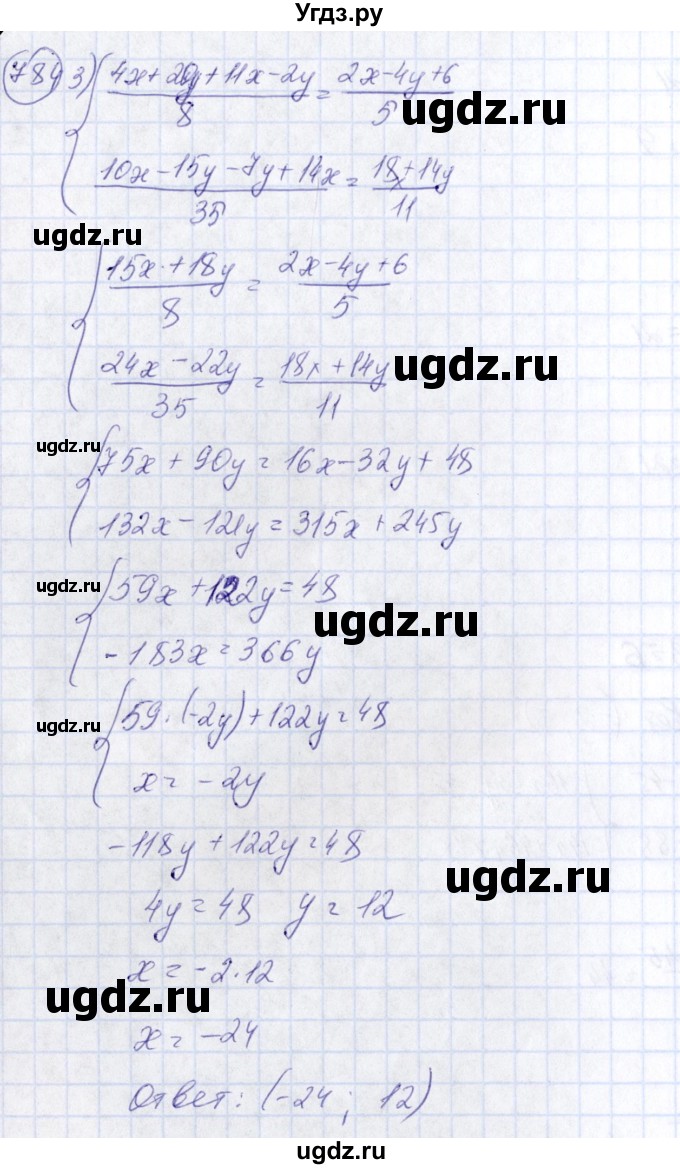 Угдз.ру
784 3) { (4x + 20y + 11x - 2y)/8 = (2x - 4y + 6)/5
ugdz.ru
(10x - 15y - 7y + 14x)/35 = (18x + 14y)/11
ugdz.ru
{ (15x + 18y)/8 = (2x - 4y + 6)/5
(24x - 22y)/35 = (18x + 14y)/11
ugdz.ru
ugdz.ru
{ 75x + 90y = 16x - 32y + 48
132x - 121y = 315x + 245y
ugdz.ru
{ 59x + 122y = 48
ugdz.ru
- 183x = 366y
ugdz.ru
{ 59 · (-2y) + 122y = 48
x = - 2y
- 118y + 122y = 48
ugdz.ru
4y = 48 y = 12
x = - 2 · 12
ugdz.ru
x = - 24
Ответ: (-24 ; 12)
ugdz.ru